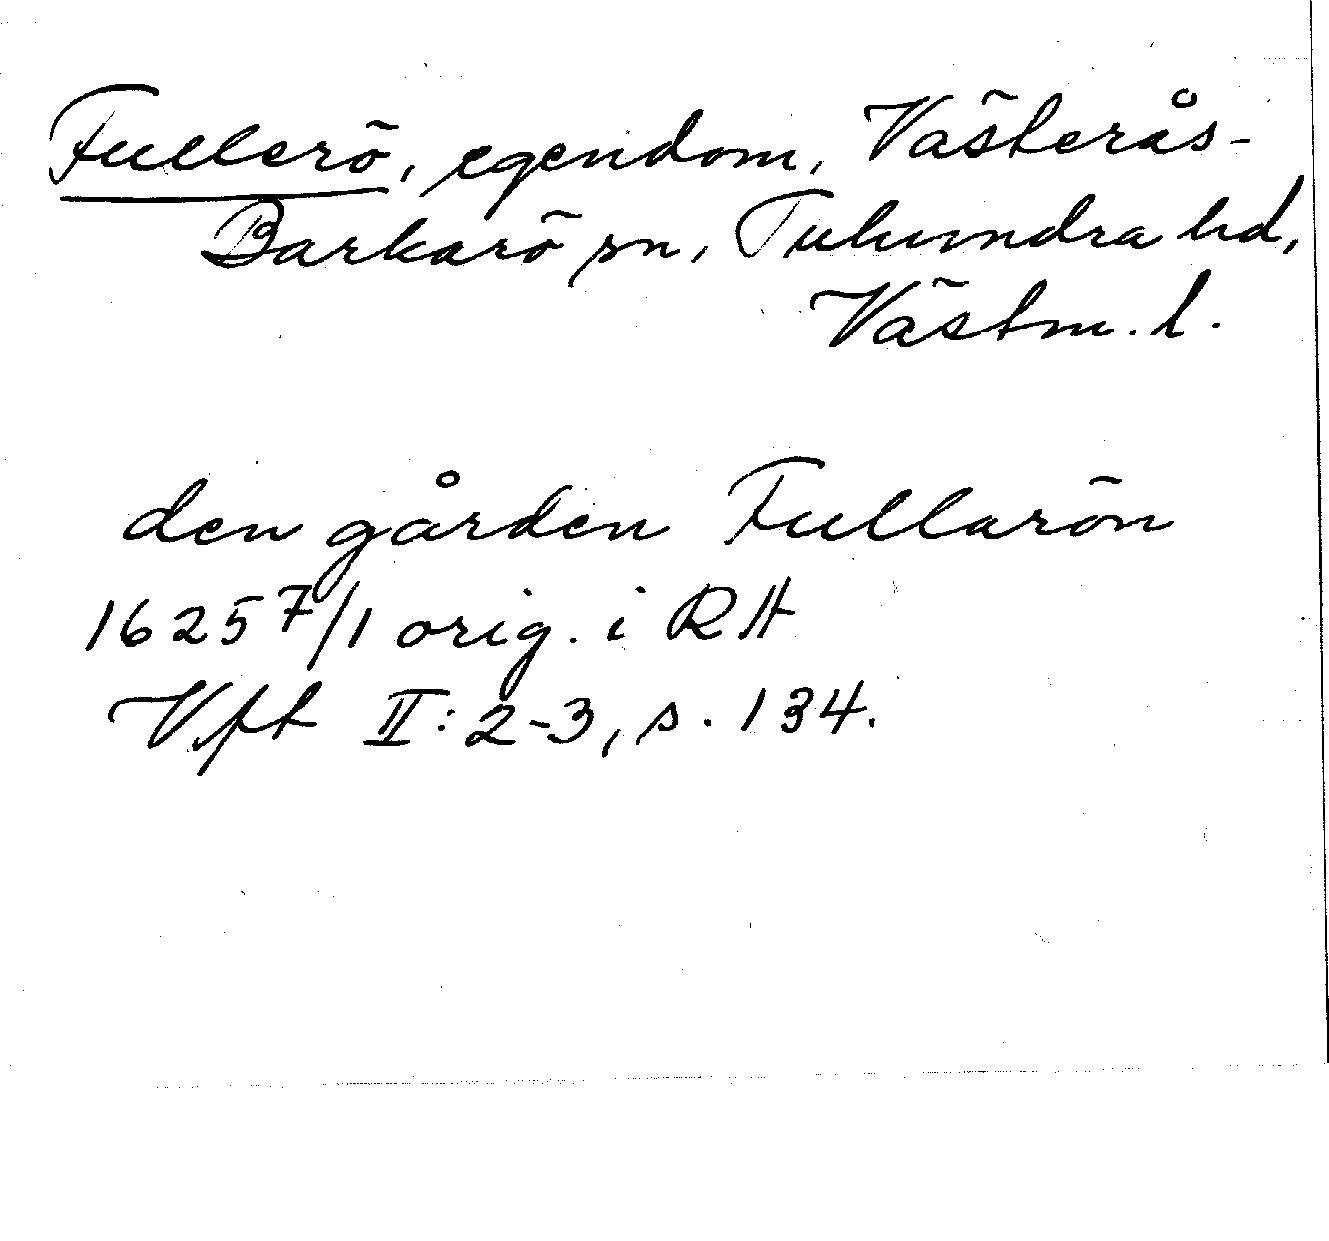 Fullerö, egendom, Västerås-
Barkarö sn, Tuhundra hd,
Västm. l.
den gården Fullarön
1625 7/1 orig. i RA
Vft II: 2-3, s. 134.